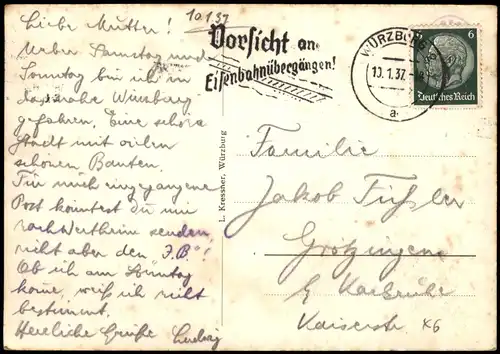 Liebe Mutter!
10.1.37
Ueber Samstag und
Sonntag bin ich in
Würzburg
gefahren. Eine schöne
Stadt mit vielen
schönen Bauten.
Für mich eingegangene
Post könntest du mir
nach Wertheim senden,
nicht aber den „F.B“!
Ob ich am Sonntag
komme, weiß ich nicht
bestimmt.
Herzliche Grüße Ludwig
Vorsicht an
Eisenbahnübergängen!
WÜRZBURG
10.1.37.
a
6
Deutsches Reich
L. Kressner, Würzburg
Familie
Jakob
Grötzingen
b/ Karlsruhe
Kaiserstr. 46